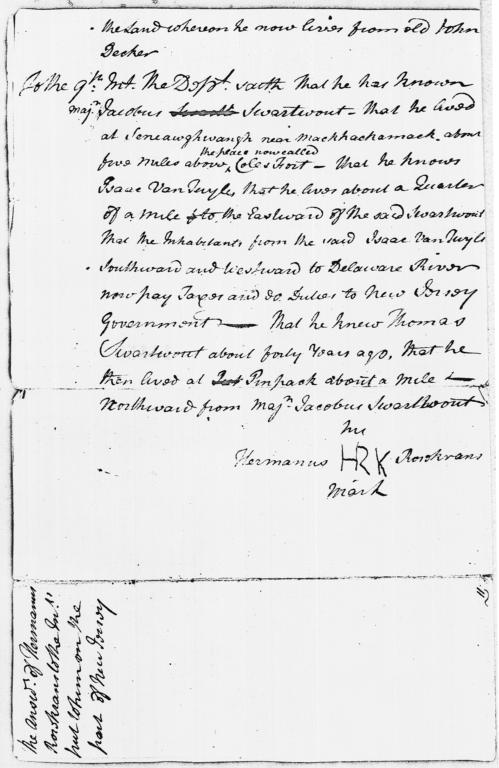 the Land whereon he now lives from old John
Decker
To the 9th. Int. The Dept. saith that he has known
majr. Jacobus Swartwout - that he lived
at Seneawghwaugh near Mackhackamack about
five miles above the place now called Coles Fort - that he knows
Isaac VanTuyle that he lives about a Quarter
of a mile to the Eastward of the said Swartwout
that the Inhabitants from the said Isaac VanTuyls
Southward and Westward to Delaware River
now pay Taxes and do Duties to New Jersey
Government - That he knew Thomas
Swartwout about forty Years ago, that he
then lived at Pinpack about a mile
Northward from majr. Jacobus Swartwout
his
Hermanus HRK Rosekrans
mark
The Answr. of Hermanus
Rosekrans to the Ints.
put to him on the
part of New Jersey